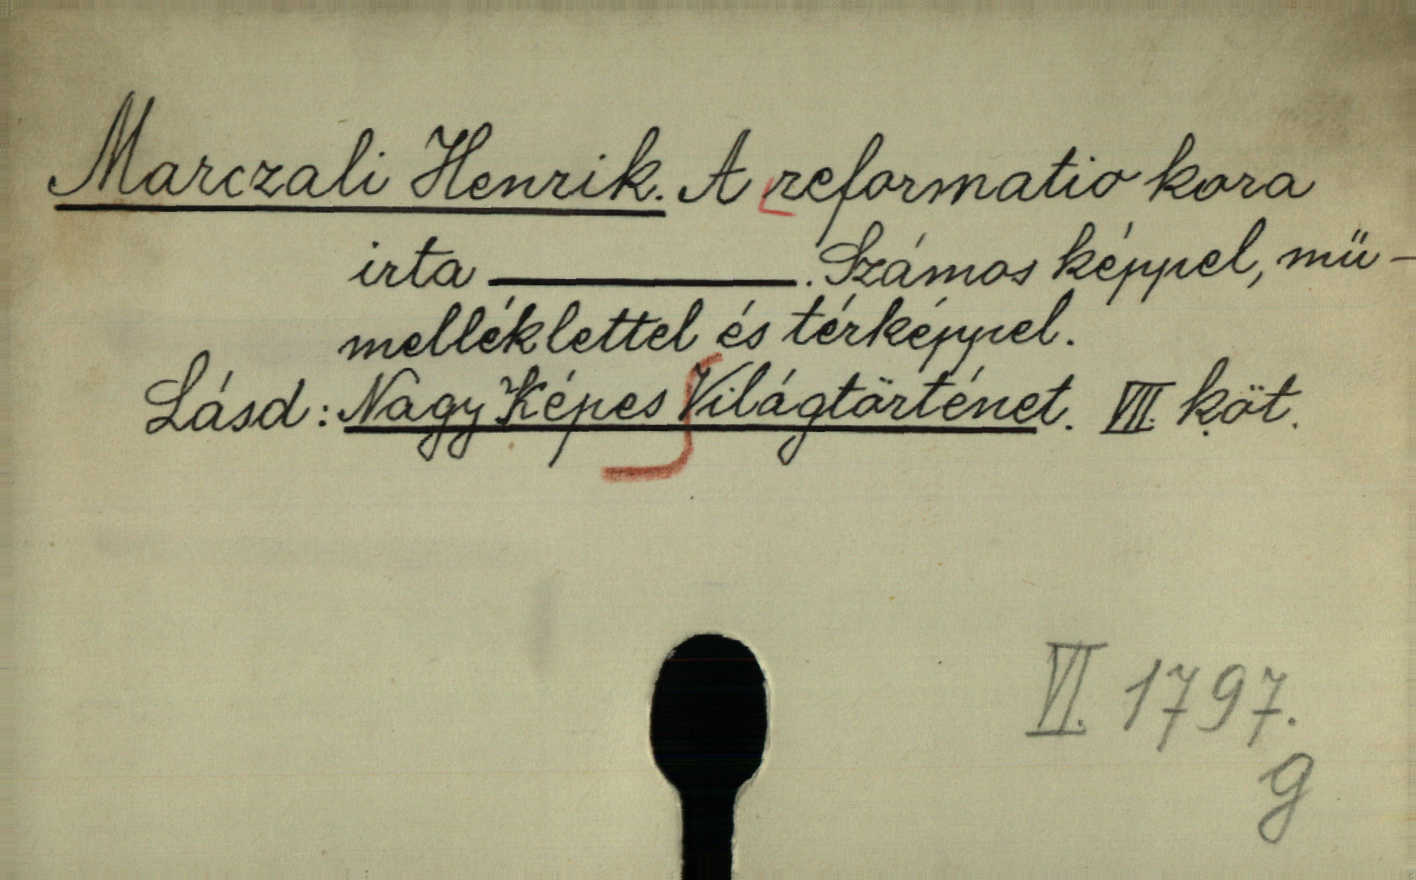 Marczali Henrik. A reformatio kora
irta ———. Számos képpel, mü-
melléklettel és térképpel.
Lásd: Nagy Képes Világtörténet. VII. köt.
VI. 1797.
g